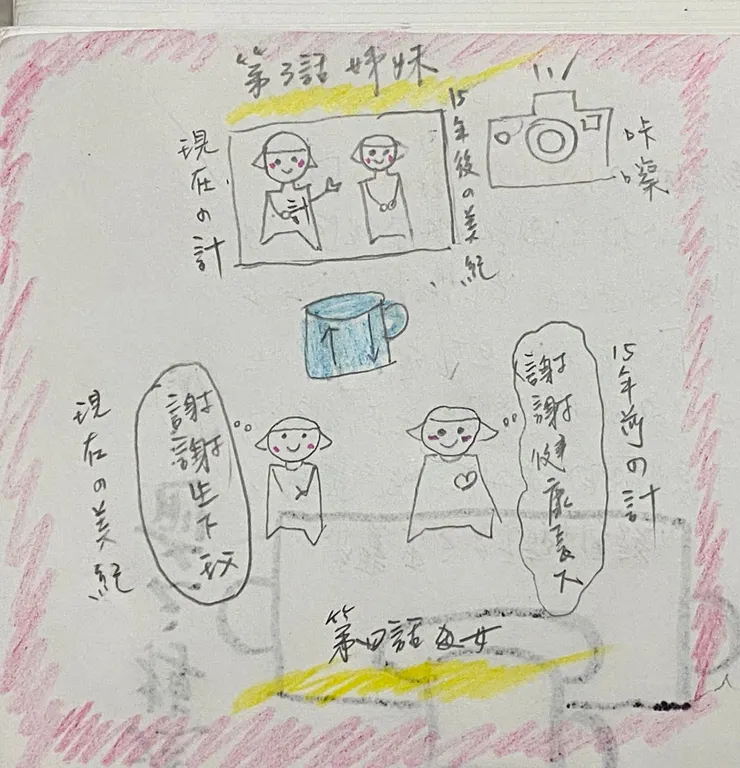 第3話 姉妹
現在の計
計
15年後の美紀
咔嚓
現在の美紀
謝謝生下我
謝謝健康長大
15年前の計
第四話 母女